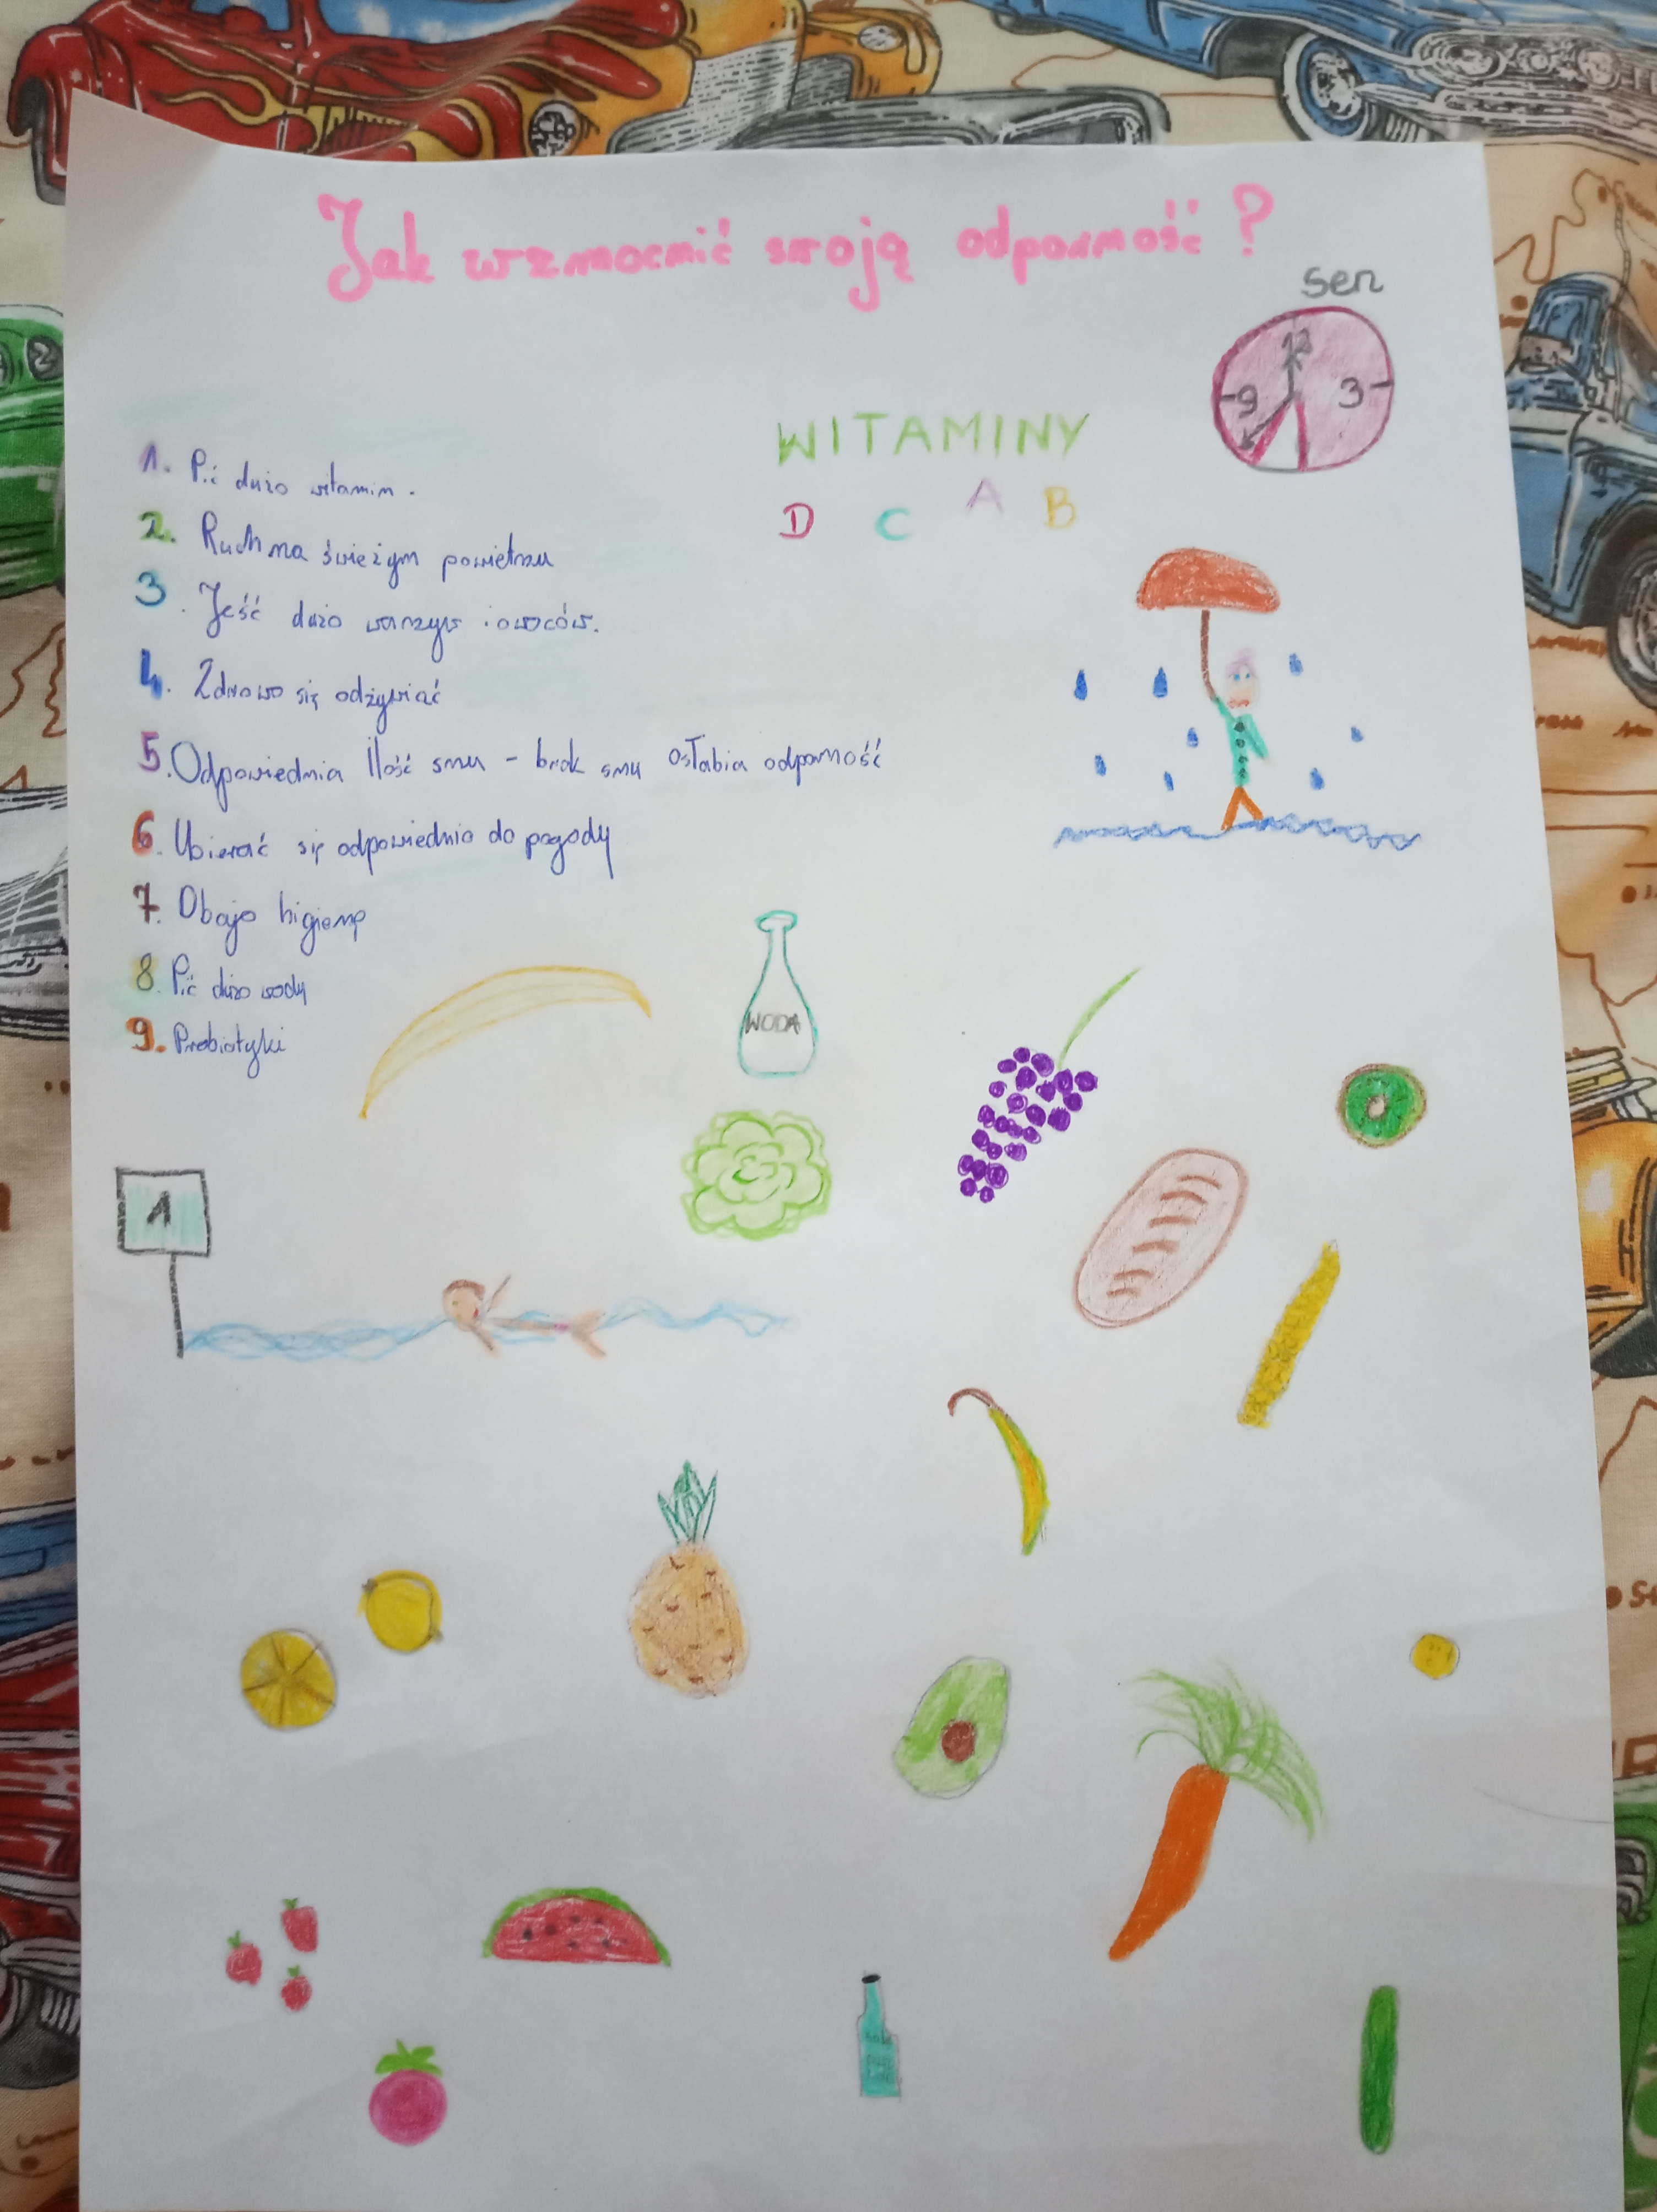 Jak wzmocnić swoją odporność?
sen
12
9 3
WITAMINY
D C A B
1. Pić dużo witamin.
2. Ruch na świeżym powietrzu
3. Jeść dużo warzyw i owoców.
4. Zdrowo się odżywiać
5. Odpowiednia Ilość snu - brak snu osłabia odporność
6. Ubierać się odpowiednio do pogody
7. Dbajo higienę
8. Pić dużo wody
9. Probiotyki
WODA
1